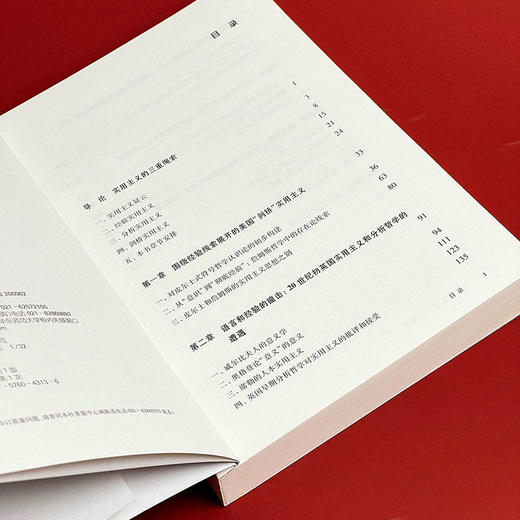 目 录
导 论 实用主义的三重线索 1
一、实用主义疑云 3
二、经验实用主义 8
三、分析实用主义 15
四、剑桥实用主义 21
五、本书章节安排 24
第一章 围绕经验线索展开的美国“剑桥”实用主义 33
一、对皮尔士式符号哲学认识论的初步构建 36
二、从“意识”到“彻底经验”：詹姆斯哲学中的存在论线索 63
三、皮尔士和詹姆斯的实用主义思想之别 80
第二章 语言和经验的撞击：20 世纪初英国实用主义和分析哲学的
遭遇 91
一、威尔比夫人的意义学 94
二、奥格登论“意义”的意义 111
三、席勒的人本实用主义 123
四、英国早期分析哲学对实用主义的批评和接受 135
目录 1
200062
021 - 62572105
021 - 62869887
华东师范大学校内先锋路口
1/32
1 版
1 次
- 5760 - 4313 - 6